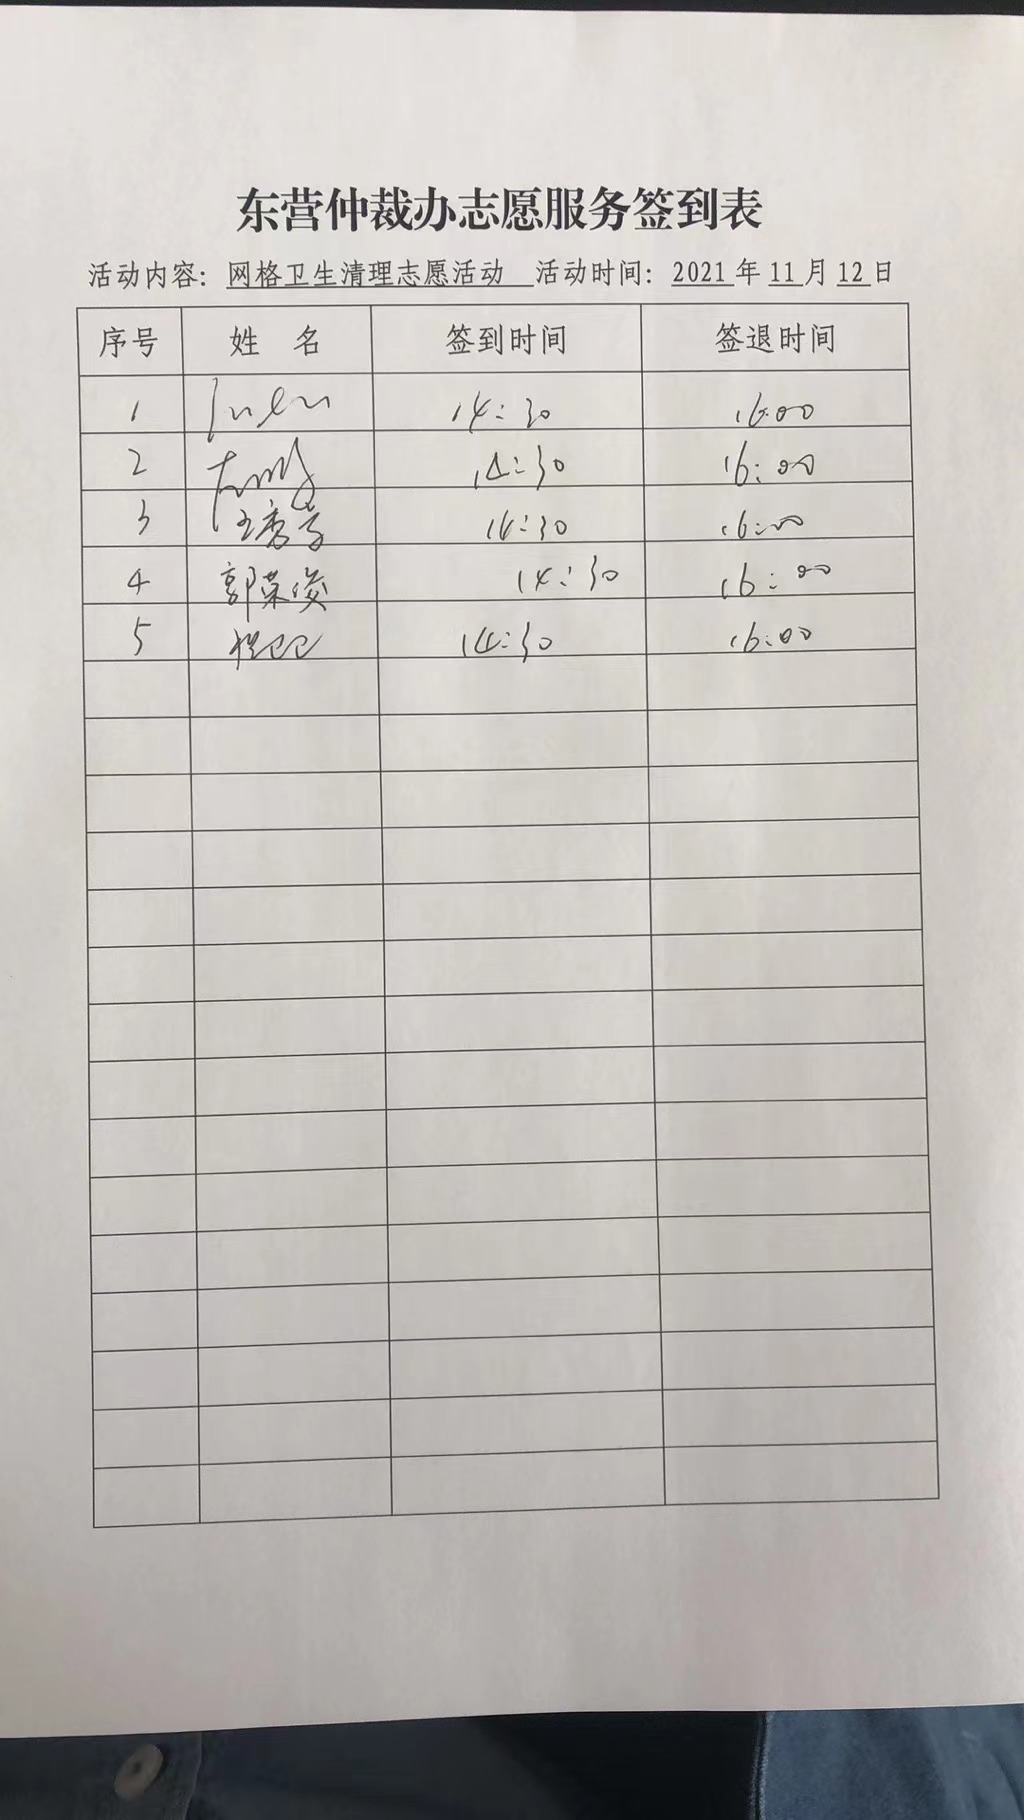 东营仲裁办志愿服务签到表
活动内容：网格卫生清理志愿活动 活动时间：2021年11月12日
序号 姓 名 签到时间 签退时间
1 14:30 16:00
2 14:30 16:00
3 14:30 16:00
4 郭荣俊 14:30 16:00
5 14:30 16:00